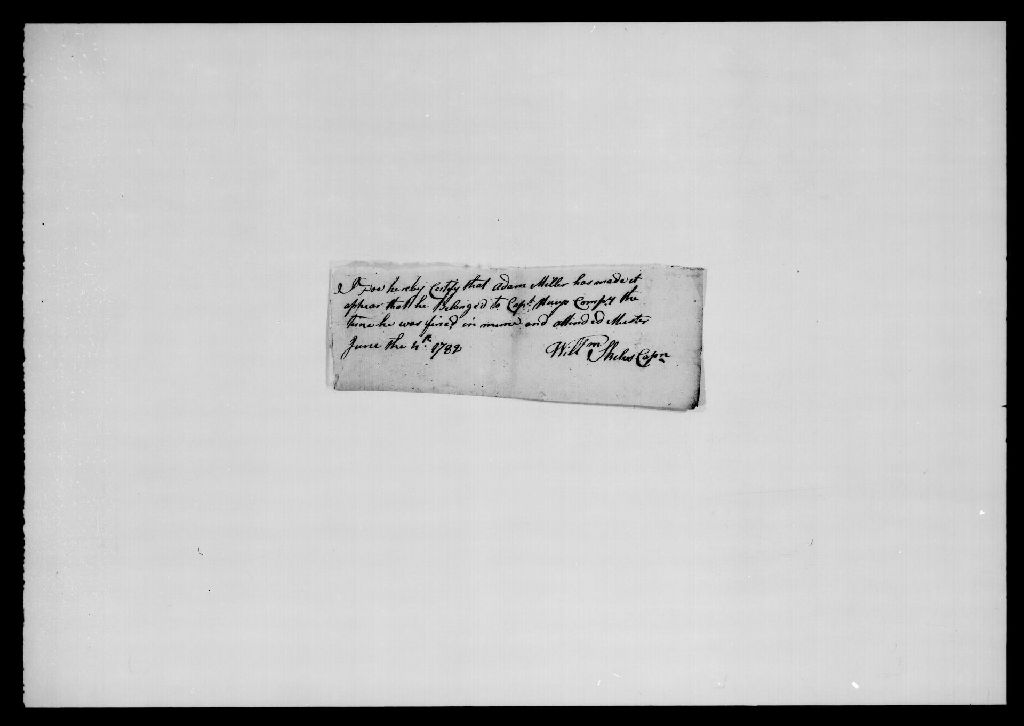 I Doe hereby Certify that Adam Miller has made it
appear that he Belonged to Capt. Comp'y the
time he was fined in mine and attended Muster
June the 4th. 1782 Willm Capn